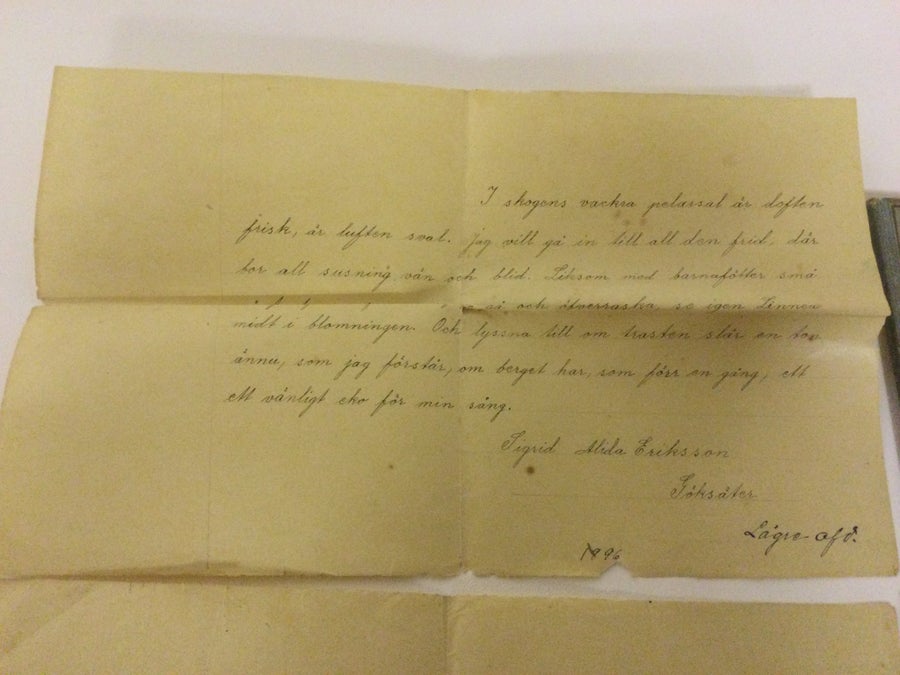 I skogens vackra pelarsal är doften
frisk, är luften sval. Jag vill gå in till all den frid, där
bor all susning vän och blid. Liksom med barnafötter små
och öfverraska, se igen Linnea
midt i blomningen. Och lyssna till om trasten slår en ton
ännu, som jag förstår, om berget har, som förr en gång, ett
ett vänligt eko för min sång.
Sigrid Alida Eriksson
Göksäter
Lägre afd.
1896